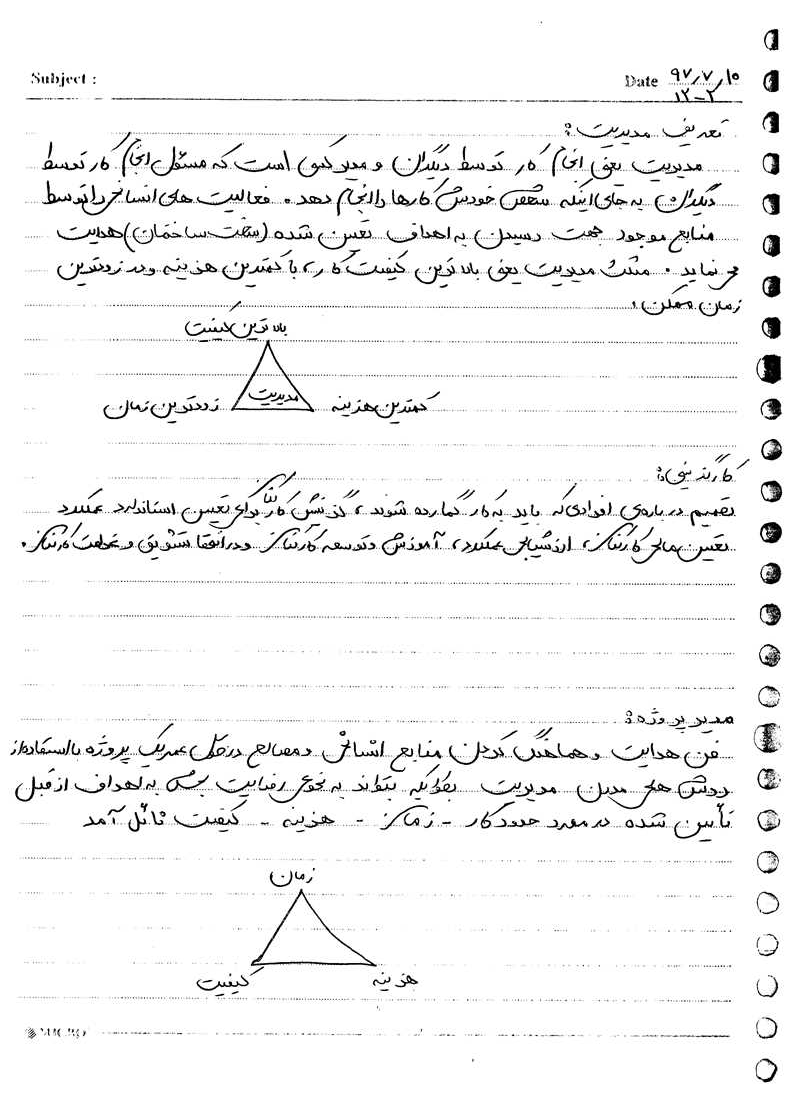 Subject :
Date ۹۷٫۷٫۱۰
۱۲-۲
تعریف مدیریت :
مدیریت یعنی انجام کار توسط دیگران و مدیر کسی است که مسئول انجام کار توسط
دیگران به جای اینکه شخص خودش کارها را انجام دهد. فعالیت های انسانی را توسط
منابع موجود جهت رسیدن به اهداف تعیین شده (سخت ساختمان) هدایت
می نماید. مثلث مدیریت یعنی بالاترین کیفیت کار، با کمترین هزینه و در زودترین
زمان ممکن.
بالاترین کیفیت
مدیریت
کمترین هزینه
زودترین زمان
کارگزینی:
تصمیم درباره‌ی افرادی که باید به کار گمارده شوند، گزینش کارکنان برای تعیین استاندارد عملکرد
تعیین مالی کارکنان، ارزشیابی عملکرد، آموزش و توسعه کارکنان و در انتها تشویق و کارکنان.
مدیر پروژه:
فن هدایت و هماهنگ کردن منابع انسانی و مصالح در طول عمر یک پروژه با استفاده از
روش های مدرن مدیریت بطوریکه بتواند به نحوی رضایت بخش به اهداف از قبل
تأیین شده در مورد حدود کار - زمان - هزینه - کیفیت نائل آمد
زمان
هزینه
کیفیت
MICRO